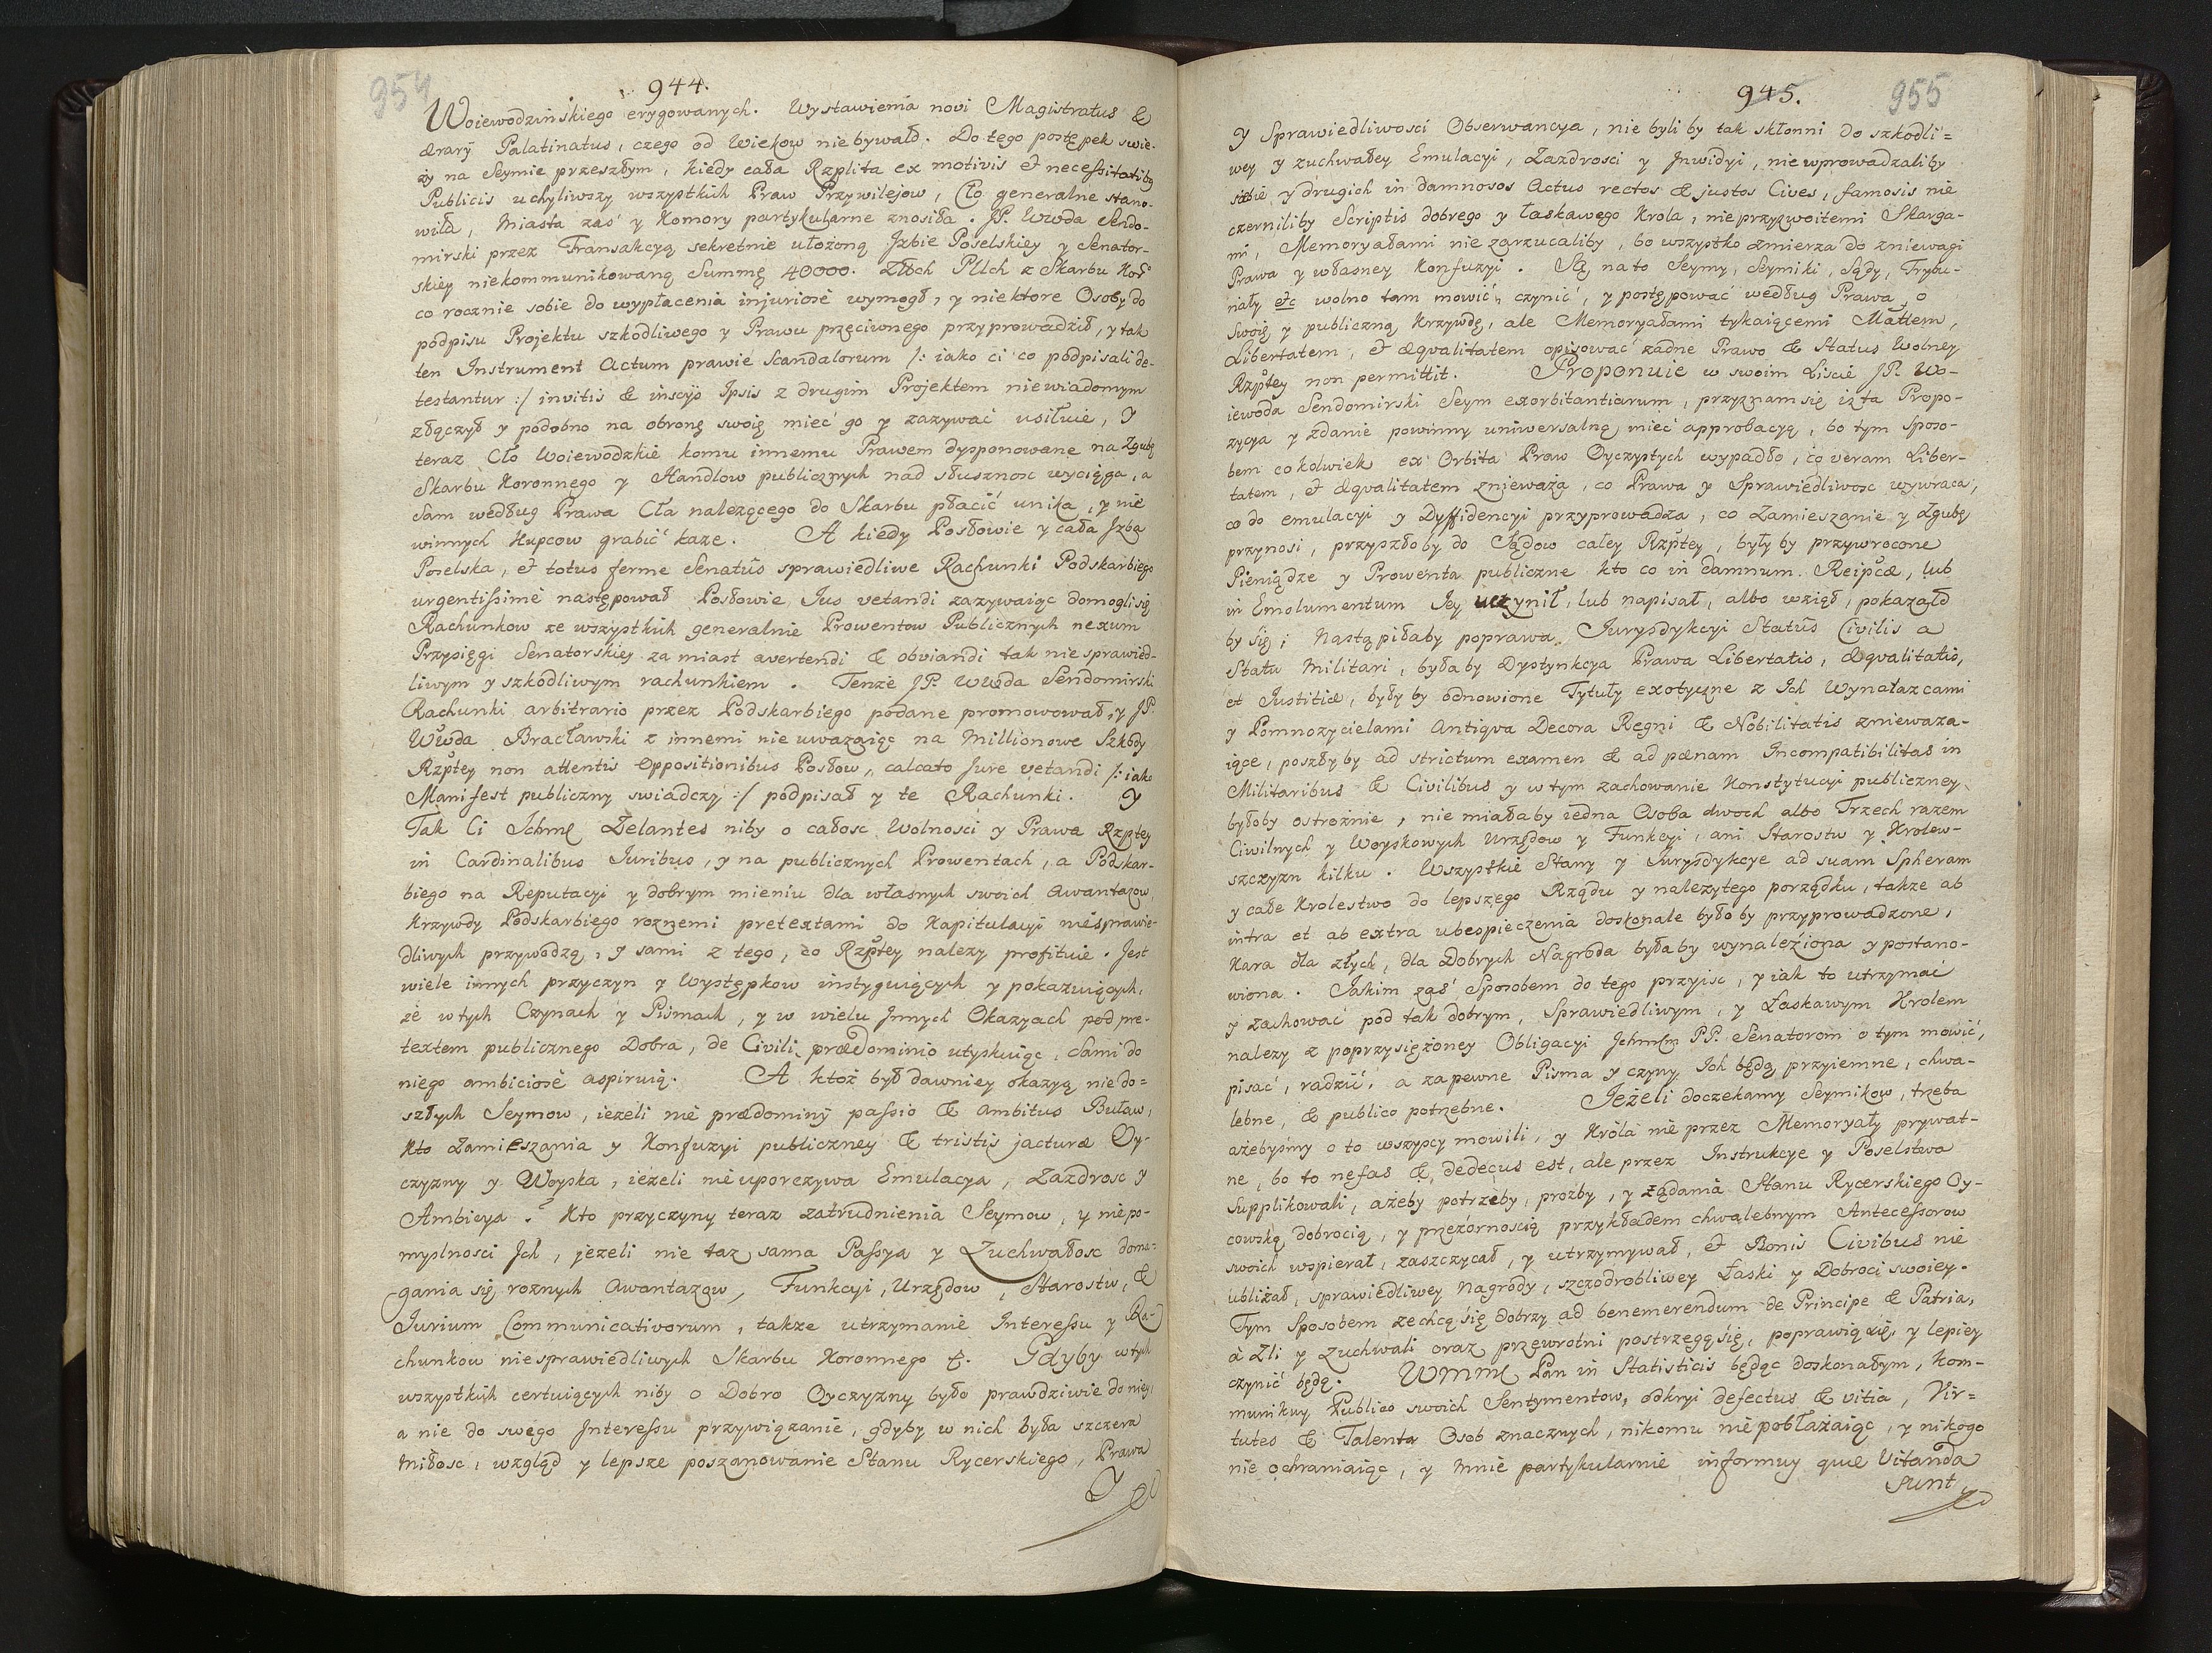 954
944.
Woiewodzińskiego erygowanych. Wystawienia novi Magistratus &
ærarÿ Palatinatus, czego od Wiekow niebywałd. Do tego postępek swie-
ży na Seymie przeszłym, kiedy cała Rzplita ex motivis et necessitatibg
Publicis uchyliwszy wszystkich Praw Przywilejow, Cło generalne stano-
wiła, Miasta zaś y Komory partykularne znosiła. JP. Wwda Sendo-
mirski przez Transakcyą sekretnie ułożoną Jzbie Poselskiey y Senator-
skiey niekommunikowaną Summę 40000. Złtch Pllch z Skarbu Koro
co rocznie sobie do wypłacenia injuriosè wymogł, y niektore Osoby do
podpisu Projektu szkodliwego y Prawu przeciwnego przyprowadził, y tak
ten Instrument Actum prawie Scandalorum /: iako ci co podpisali de-
testantur :/ invitis & inscÿs Ipsis z drugim Projektem niewiadomym
złączył y podobno na obronę swoię mieć go y zazywać usiłuie, y
teraz Cło Woiewodzkie komu innemu Prawem dysponowane na Zgubę
Skarbu Koronnego y Handlow publicznych nad słusznosc wyciąga, a
Sam według Prawa Cła nalezącego do Skarbu płacić unika, y nie
winnych Kupcow grabić kaze. A kiedy Posłowie y cała Jzba
Poselska, et totus ferme Senatûs sprawiedliwe Rachunki Podskarbiego
urgentissimè następował Posłowie Jus vetandi zazywaiąc domogli się
Rachunkow ze wszystkich generalnie Prowentow Publicznych nexum
Przysięgi Senatorskiey za miast avertendi & obviandi tak nie sprawied-
liwym y szkodliwym rachunkiem. Tenże JP. Wwda Sendomirski
Rachunki arbitrario przez Podskarbiego podane promowował, y JP.
Wwda Bracławski z innemi nie uwazaiąc na Millionowe Szkody
Rzptey non attentis Oppositionibus Posłow, calcato Jure vetandi /: iako
Manifest publiczny swiadczy :/ podpisał y te Rachunki. Y
Tak Ci Ichmć Zelantes niby o całosc Wolnosci y Prawa Rzptey
in Cardinalibus Juribus, y na publicznych Prowentach, a Podskar-
biego na Reputacyi y dobrym mieniu dla własnych swoich Awantazow,
Krzywdy Podskarbiego roznemi pretextami do Kapitulacyi niesprawie-
dliwych przywodzą, y sami z tego, co Rzptey nalezy profituie. Jest
wiele innych przyczyn y Występkow instyguiących y pokazuiących,
że w tych Czynach y Pismach, y w wielu Jnnych Okazyach pod pre-
textem publicznego Dobra, de Civili prædominio utyskuiąc, Sami do
niego ambiciosè aspiruią. A ktoż był dawniey okazyą niedo=
szłych Seymow, iezeli nie prædominÿ passio & ambitus Buław,
Kto Zamieszania y Konfuzyi publiczney & tristis jacturæ Oy-
czyzny y Woyska, iezeli nie uporczywa Emulacya, Zazdrosc y
Ambicya? Kto przyczyny teraz zatrudnienia Seymow, y niepo-
myslnosci Jch, jezeli nie taz sama Passya y Zuchwałosc doma-
gania się roznych Awantazow, Funkcyi, Urzędow, Starostw, &
Jurium Communicativorum, takze utrzymanie Interessu y Ra-
chunkow niesprawiedliwych Skarbu Koronnego &. Gdyby w tych
wszystkich certuiących niby o Dobro Oyczyzny było prawdziwie do niey,
a nie do swego Interessu przywiązanie, gdyby w nich była szczera
Miłosc, wzgląd y lepsze poszanowanie Stanu Rycerskiego, Prawa
Y
945.
955
Y Sprawiedliwosci Obserwancya, nie byli by tak skłonni do szkodli=
wey y zuchwałey Emulacyi, Zazdrosci y Jnwidyi, nie wprowadzaliby
siebie y drugich in damnosos Actus rectos & justos Cives, famosis nie
czerniliby Scriptis dobrego y łaskawego Krola, nieprzyzwoitemi Skarga-
mi, Memoryałami nie zarzucaliby, bo wszystko zmierza do zniewagi
Prawa y własney Konfuzyi. Są na to Seymy, Seymiki, Sądy, Trybu-
nały etc wolno tam mowić, czynić, y postępować według Prawa, o
Swoię y publiczną Krzywdę, ale Memoryałami tykaiącemi Mattem,
Libertatem, et æqvalitatem opisować zadne Prawo & Status Wolney
Rzptey non permittit. Proponuie w swoim Liscie JP. Wo-
iewoda Sendomirski Seym exorbitantiarum, przyznam się iz ta Propo-
zycya y zdanie powinny uniwersalną mieć approbacyą, bo tym sposo-
bem cokolwiek ex Orbita Praw Oyczystych wypadło, co veram Liber-
tatem, et æqvalitatem zniewaza, co Prawa y Sprawiedliwosc wywraca,
co do emulacyi y Dyffidencyi przyprowadza, co Zamieszanie y Zgubę
przynosi, przyszłoby do Sądow całey Rzptey, były by przywrocone
Pieniądze y Prowenta publiczne kto co in damnum Reipcæ, lub
in Emolumentum Jey uczynił, lub napisał, albo wziął, pokazałd
by się; Nastąpiłaby poprawa Jurysdykcyi Statûs Civilis a
Statu Militari, byłaby Dystynkcya Prawa Libertatis, Æqvalitatis,
et Justitiæ, były by odnowione Tytuły exotyczne z Ich Wynalazcami
y Pomnozycielami Antiqva Decora Regni & Nobilitatis zniewaza-
iące, poszły by ad strictum examen & ad pænam Incompatibilitas in
Militaribus & Civilibus y w tym zachowanie Konstytucyi publiczney
byłoby ostrożnie, nie miałaby iedna Osoba dwoch albo Trzech razem
Ciwilnych y Woyskowych Urzędow y Funkcyi, ani Starostw y Krolew-
szczyzn kilku. Wszystkie Stany y Jurysdykcye ad suam Spheram
y całe Krolestwo do lepszego Rządu y nalezytego porządku, takze ab
intra et ab extra ubespieczenia doskonale było by przyprowadzone,
Kara dla złych, dla Dobrych Nagroda byłaby wynaleziona y postano-
wiona. Jakim zaś Sposobem do tego przyisc, y iak to utrzymać
y zachować pod tak dobrym, Sprawiedliwym, y Łaskawym Krolem
nalezy z poprzysiężoney Obligacyi Jchmm PP. Senatorom o tym mowić,
pisać, radzić, a zapewne Pisma y czyny Ich będą przyiemne, chwa-
lebne, & publico potrzebne. Jeżeli doczekamy Seymikow, trzeba
ażebyśmy o to wszyscy mowili, y Króla nie przez Memoryały prywat-
ne, bo to nefas & dedecus est, ale przez Instrukcye y Poselstwa
Supplikowali, ażeby potrzeby, prozby, y żądania Stanu Rycerskiego Oy-
cowską dobrocią, y przezornoscią przykładem chwalebnym Antecessorow
swoich wspierał, zaszczycał, y utrzymywał, et Bonis Civibus nie
ubliżał, sprawiedliwey Nagrody, szczodrobliwey Łaski y Dobroci swoiey.
Tym Sposobem zechcą się dobrzy ad benemerendum de Principe & Patria,
à Zli y Zuchwali oraz przewrotni postrzegą się, poprawią się, y lepiey
czynić będą. WMMć Pan in Statisticis będąc doskonałym, kom-
munikuy Publico swoich Sentymentow, odkryi defectus & vitia, Vir=
tutes & Talenta Osob znacznych, nikomu nie pobłażaiąc, y nikogo
nie ochraniaiąc, y mnie partykularnie informuy quæ Vitanda
Sunt